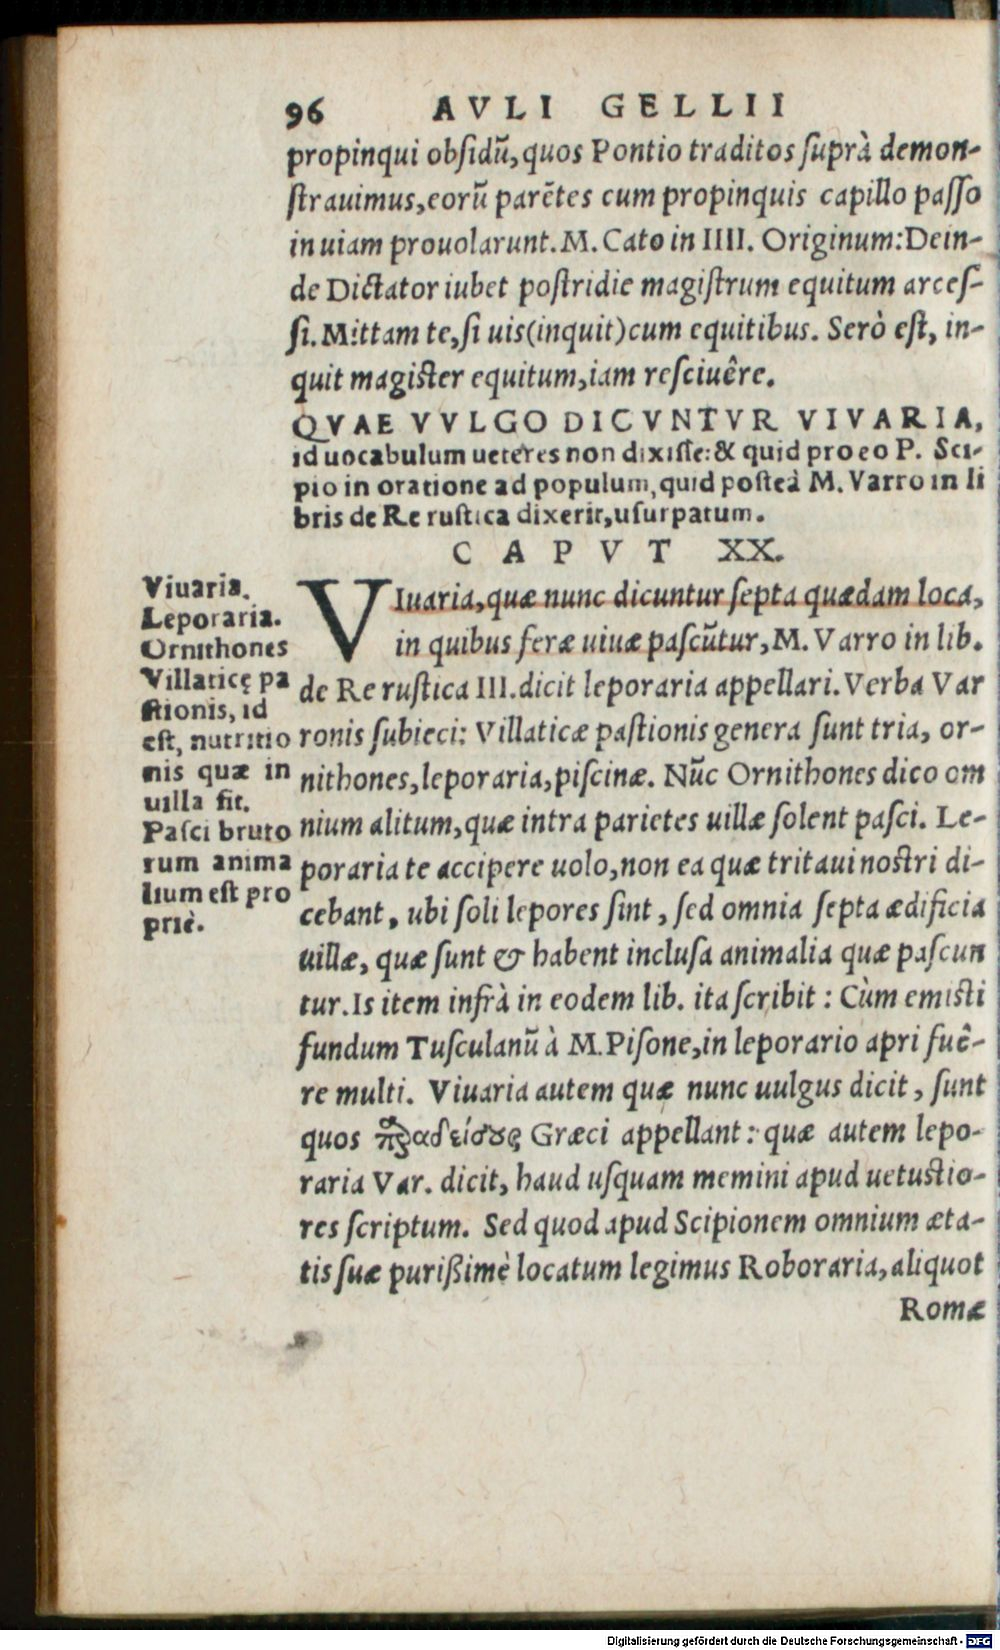 96 AVLI GELLII
propinqui obsidũ, quos Pontio traditos suprà demon-
strauimus, eorũ parẽtes cum propinquis capillo passo
in uiam prouolarunt. M. Cato in IIII. Originum: Dein-
de Dictator iubet postridie magistrum equitum arces-
si. Mittam te, si uis (inquit) cum equitibus. Serò est, in-
quit magister equitum, iam resciuêre.
QVAE VVLGO DICVNTVR VIVARIA,
id uocabulum ueteres non dixisse: & quid pro eo P. Sci-
pio in oratione ad populum, quid posteà M. Varro in li
bris de Re rustica dixerit, usurpatum.
CAPVT XX.
VIuaria, quæ nunc dicuntur septa quædam loca,
in quibus feræ uiuæ pascũtur, M. Varro in lib.
de Re rustica III. dicit leporaria appellari. Verba Var
ronis subieci: Villaticæ pastionis genera sunt tria, or-
nithones, leporaria, piscinæ. Nũc Ornithones dico om
nium alitum, quæ intra parietes uillæ solent pasci. Le-
poraria te accipere uolo, non ea quæ tritaui nostri di-
cebant, ubi soli lepores sint, sed omnia septa ædificia
uillæ, quæ sunt & habent inclusa animalia quæ pascun
tur. Is item infrà in eodem lib. ita scribit: Cùm emisti
fundum Tusculanũ à M. Pisone, in leporario apri fuê-
re multi. Viuaria autem quæ nunc uulgus dicit, sunt
quos παραδείσους Græci appellant: quæ autem lepo-
raria Var. dicit, haud usquam memini apud uetustio-
res scriptum. Sed quod apud Scipionem omnium æta-
tis suæ purißimè locatum legimus Roboraria, aliquot
Romæ
Viuaria.
Leporaria.
Ornithones
Villaticę pa
stionis, id
est, nutritio
nis quæ in
uilla fit.
Pasci bruto
rum anima
lium est pro
priè.
Digitalisierung gefördert durch die Deutsche Forschungsgemeinschaft - DFG